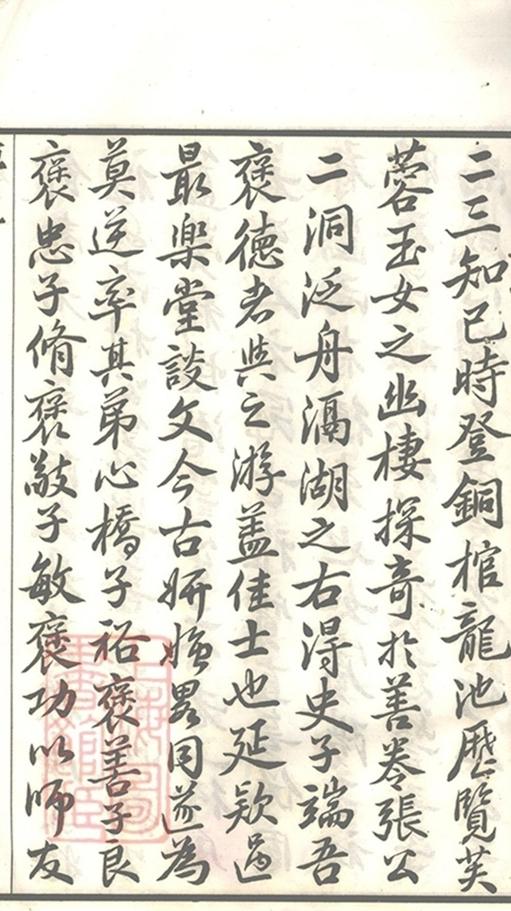 二三知己時登銅棺龍池歷覽芙
蓉玉女之幽棲探奇於善卷張公
二洞泛舟滆湖之右得史子端吾
褒德者與之游蓋佳士也延欵過
最樂堂談文今古妍媸畧同遂為
莫逆率其弟心橋子裕褒善子良
褒忠子脩褒敬子敏褒功以師友